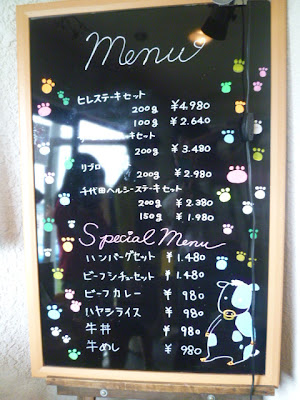 Menu
ヒレステーキセット
200g ¥4.980
100g ¥2.640
ーキセット
200g ¥3.480
リブロ
200g ¥2.980
千代田ヘルシーステーキセット
200g ¥2.380
150g ¥1.980
Special Menu
ハンバーグセット ¥1.480
ビーフシチューセット ¥1.480
ビーフカレー ¥980
ハヤシライス ¥980
牛丼 ¥980
牛めし ¥980